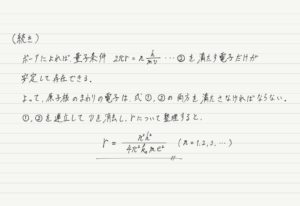 (続き)
ボーアによれば 量子条件 2πr = n h/mv … ② を満たす電子だけが
安定して存在できる。
よって、原子核のまわりの電子は、式①、②の両方を満たさなければならない。
①、②を連立して v を消し、r について整理すると、
r = n²h² / 4π²k₀me² (n = 1, 2, 3, …)